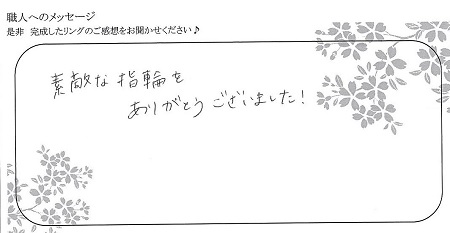 職人へのメッセージ
是非 完成したリングのご感想をお聞かせください♪
素敵な指輪を
ありがとうございました!